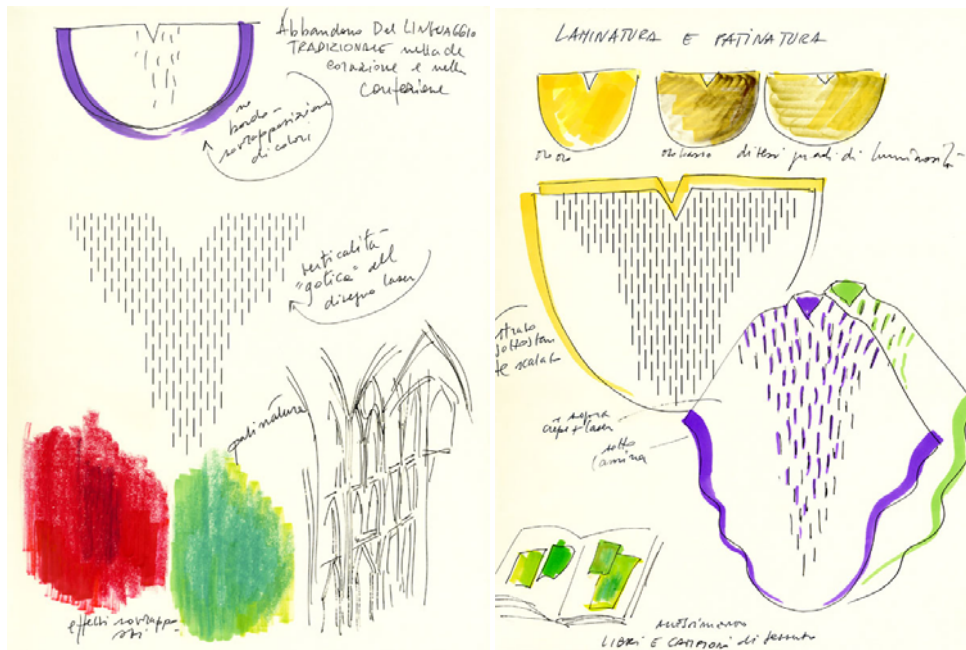 Abbandono Del LINGUAGGIO
TRADIZIONALE nella de
corazione e nella
Confezione
bordo -
sovrapposizione
di colori
verticalità
"gotica" del
disegno laser
patinature
effetti sovrappo
sti -
LAMINATURA E PATINATURA
oro oro
oro basso
diversi gradi di luminosità
strato
sottostan
te scalato
sopra
crêpe + laser
sotto
lamina
LIBRI E CAMPIONI di tessuto